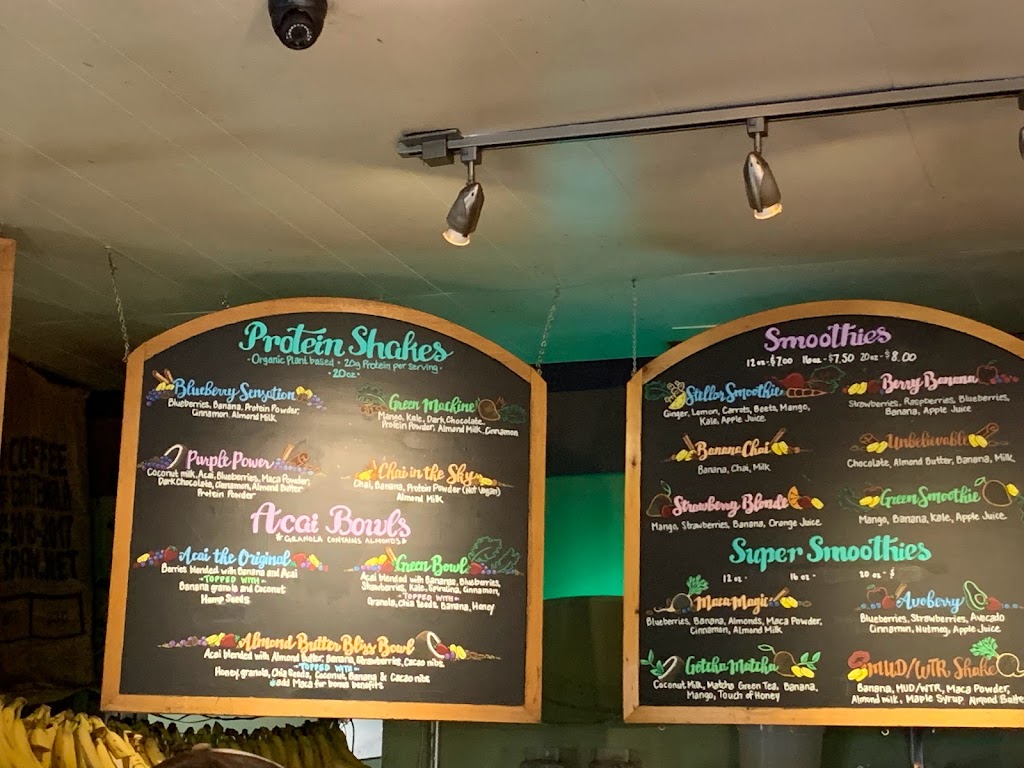 Protein Shakes
- Organic Plant based • 20g Protein per serving -
• 20oz •
Blueberry Sensation
Blueberries, Banana, Protein Powder,
Cinnamon, Almond Milk
Green Machine
Mango, Kale, Dark Chocolate,
Protein Powder, Almond Milk, Cinnamon
Purple Power
Coconut milk, Acai, Blueberries, Maca Powder,
Dark Chocolate, Cinnamon, Almond Butter
Protein Powder
Chai in the Sky
Chai, Banana, Protein Powder (Not Vegan)
Almond Milk
Acai Bowls
* GRANOLA CONTAINS ALMONDS
Acai the Original
Berries blended with Banana and Acai
-TOPPED WITH-
Banana granola and Coconut
Hemp Seeds
Green Bowl
Acai blended with Bananas, Blueberries,
Strawberries, Kale, Spirulina, Cinnamon,
-TOPPED WITH-
Granola, Chia Seeds, Banana, Honey
Almond Butter Bliss Bowl
Acai blended with Almond Butter, Banana, Strawberries, Cacao nibs
-TOPPED WITH-
Honey, granola, Chia Seeds, Coconut, Banana & Cacao nibs
*add Maca for bonus benefits
Smoothies
12 oz - $7.00 16 oz - $7.50 20 oz - $8.00
Stellar Smoothie
Ginger, Lemon, Carrots, Beets, Mango,
Kale, Apple Juice
Berry Banana
Strawberries, Raspberries, Blueberries,
Banana, Apple Juice
Banana Chai
Banana, Chai, Milk
Unbelievable
Chocolate, Almond Butter, Banana, Milk
Strawberry Blonde
Mango, Strawberries, Banana, Orange Juice
Green Smoothie
Mango, Banana, Kale, Apple Juice
Super Smoothies
12 oz - 16 oz - 20 oz - $
Maca Magic
Blueberries, Banana, Almonds, Maca Powder,
Cinnamon, Almond Milk
Avoberry
Blueberries, Strawberries, Avocado
Cinnamon, Nutmeg, Apple Juice
Gotcha Matcha
Coconut Milk, Matcha Green Tea, Banana,
Mango, Touch of Honey
MUD/WTR Shake
Banana, MUD/WTR, Maca Powder,
Almond milk, Maple Syrup, Almond Butter
COFFEE